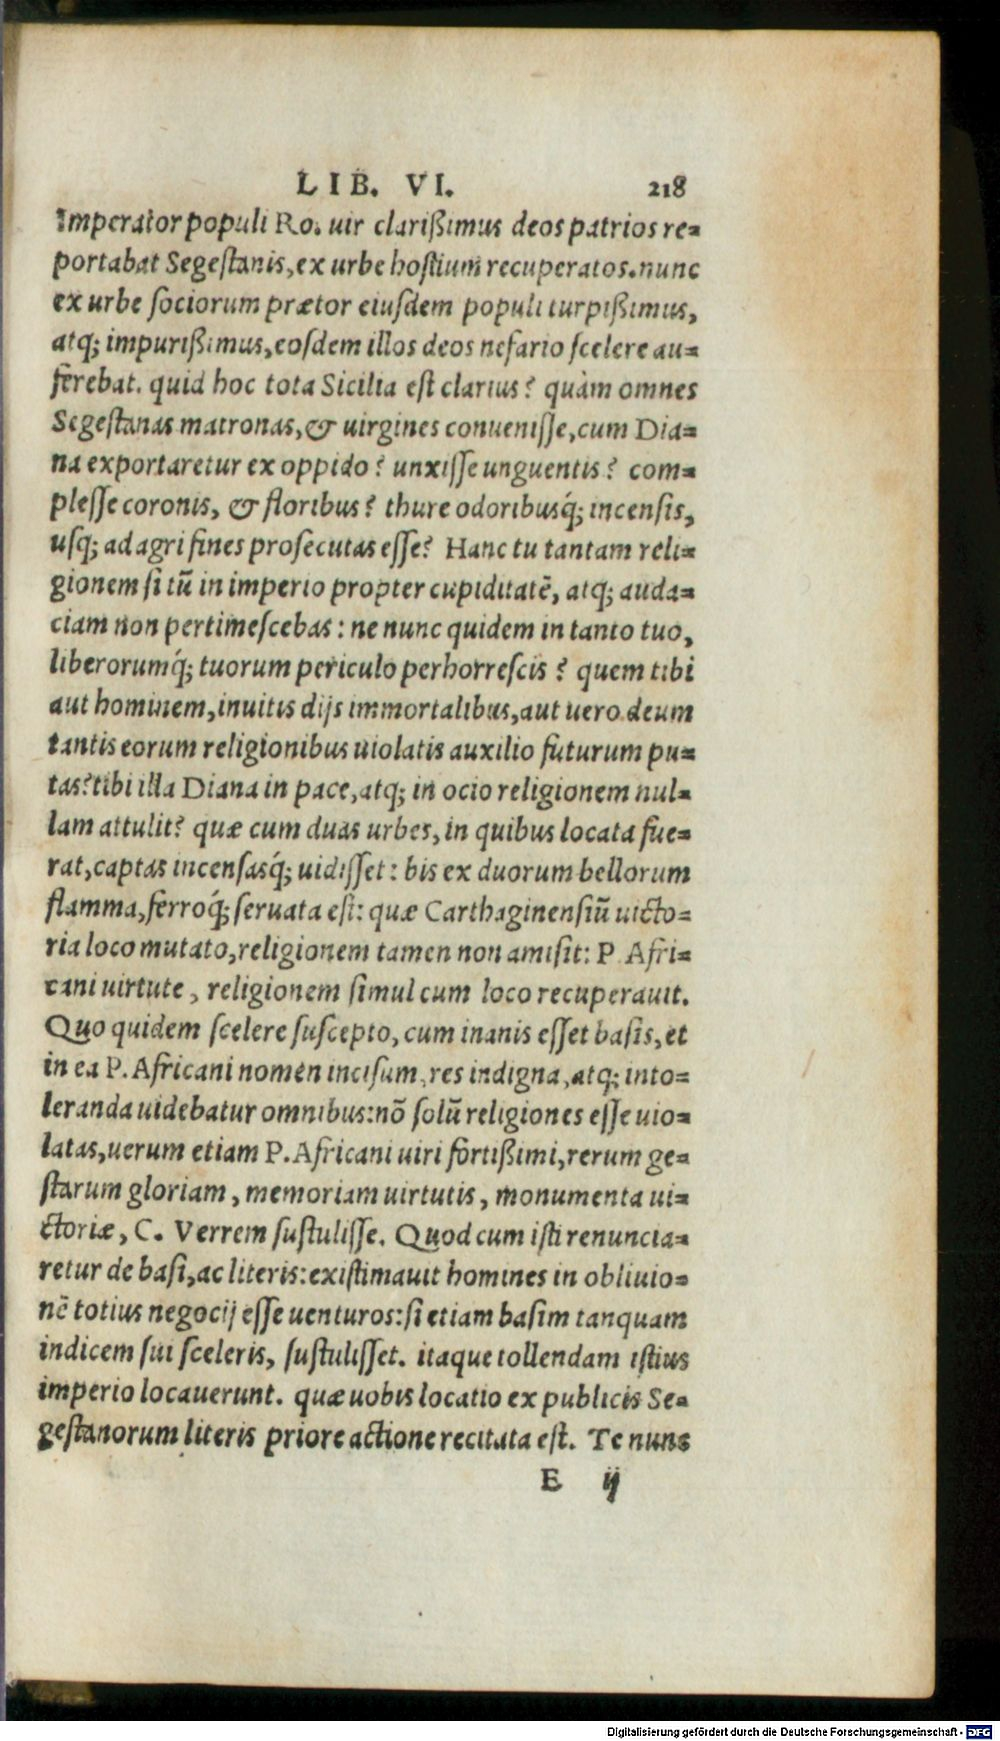 LIB. VI. 218
Imperator populi Ro. uir clarißimus deos patrios re=
portabat Segestanis, ex urbe hostium recuperatos. nunc
ex urbe sociorum prætor eiusdem populi turpißimus,
atq; impurißimus, eosdem illos deos nefario scelere au=
ferebat. quid hoc tota Sicilia est clarius? quàm omnes
Segestanas matronas, & uirgines conuenisse, cum Dia=
na exportaretur ex oppido? unxisse unguentis? com=
plesse coronis, & floribus? thure odoribusq́; incensis,
usq; ad agri fines prosecutas esse? Hanc tu tantam reli=
gionem si tū in imperio propter cupiditatē, atq; auda=
ciam non pertimescebas: ne nunc quidem in tanto tuo,
liberorumq́; tuorum periculo perhorrescis? quem tibi
aut hominem, inuitis dijs immortalibus, aut uero deum
tantis eorum religionibus uiolatis auxilio futurum pu=
tas? tibi illa Diana in pace, atq; in ocio religionem nul=
lam attulit? quæ cum duas urbes, in quibus locata fue=
rat, captas incensasq́; uidisset: bis ex duorum bellorum
flamma, ferroq́; seruata est: quæ Carthaginensiū uicto=
ria loco mutato, religionem tamen non amisit: P. Afri=
cani uirtute, religionem simul cum loco recuperauit.
Quo quidem scelere suscepto, cum inanis esset basis, et
in ea P. Africani nomen incisum, res indigna, atq; into=
leranda uidebatur omnibus: nō solū religiones esse uio=
latas, uerum etiam P. Africani uiri fortißimi, rerum ge=
starum gloriam, memoriam uirtutis, monumenta ui=
ctoriæ, C. Verrem sustulisse. Quod cum isti renuncia=
retur de basi, ac literis: existimauit homines in obliuio=
nē totius negocij esse uenturos: si etiam basim tanquam
indicem sui sceleris, sustulisset. itaque tollendam istius
imperio locauerunt. quæ uobis locatio ex publicis Se=
gestanorum literis priore actione recitata est. Te nunc
E ij
Digitalisierung gefördert durch die Deutsche Forschungsgemeinschaft - DFG